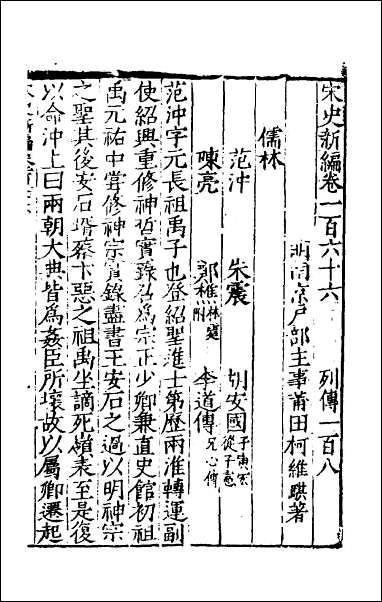 宋史新編卷一百六十六 列傳一百八
明南京戶部主事莆田柯維騏著
儒林
范沖 朱震 胡安國 子寅宏 從子憲
陳亮 鄭樵 林霆附 李道傳 兄心傳
范沖字元長祖禹子也登紹聖進士第歷兩淮轉運副
使紹興重修神哲實錄召為宗正少卿兼直史館初祖
禹元祐中嘗修神宗實錄盡書王安石之過以明神宗
之聖其後安石壻蔡卞惡之祖禹坐謫死嶺表至是復
以命沖上曰兩朝大典皆為姦臣所壞故以屬卿遷起